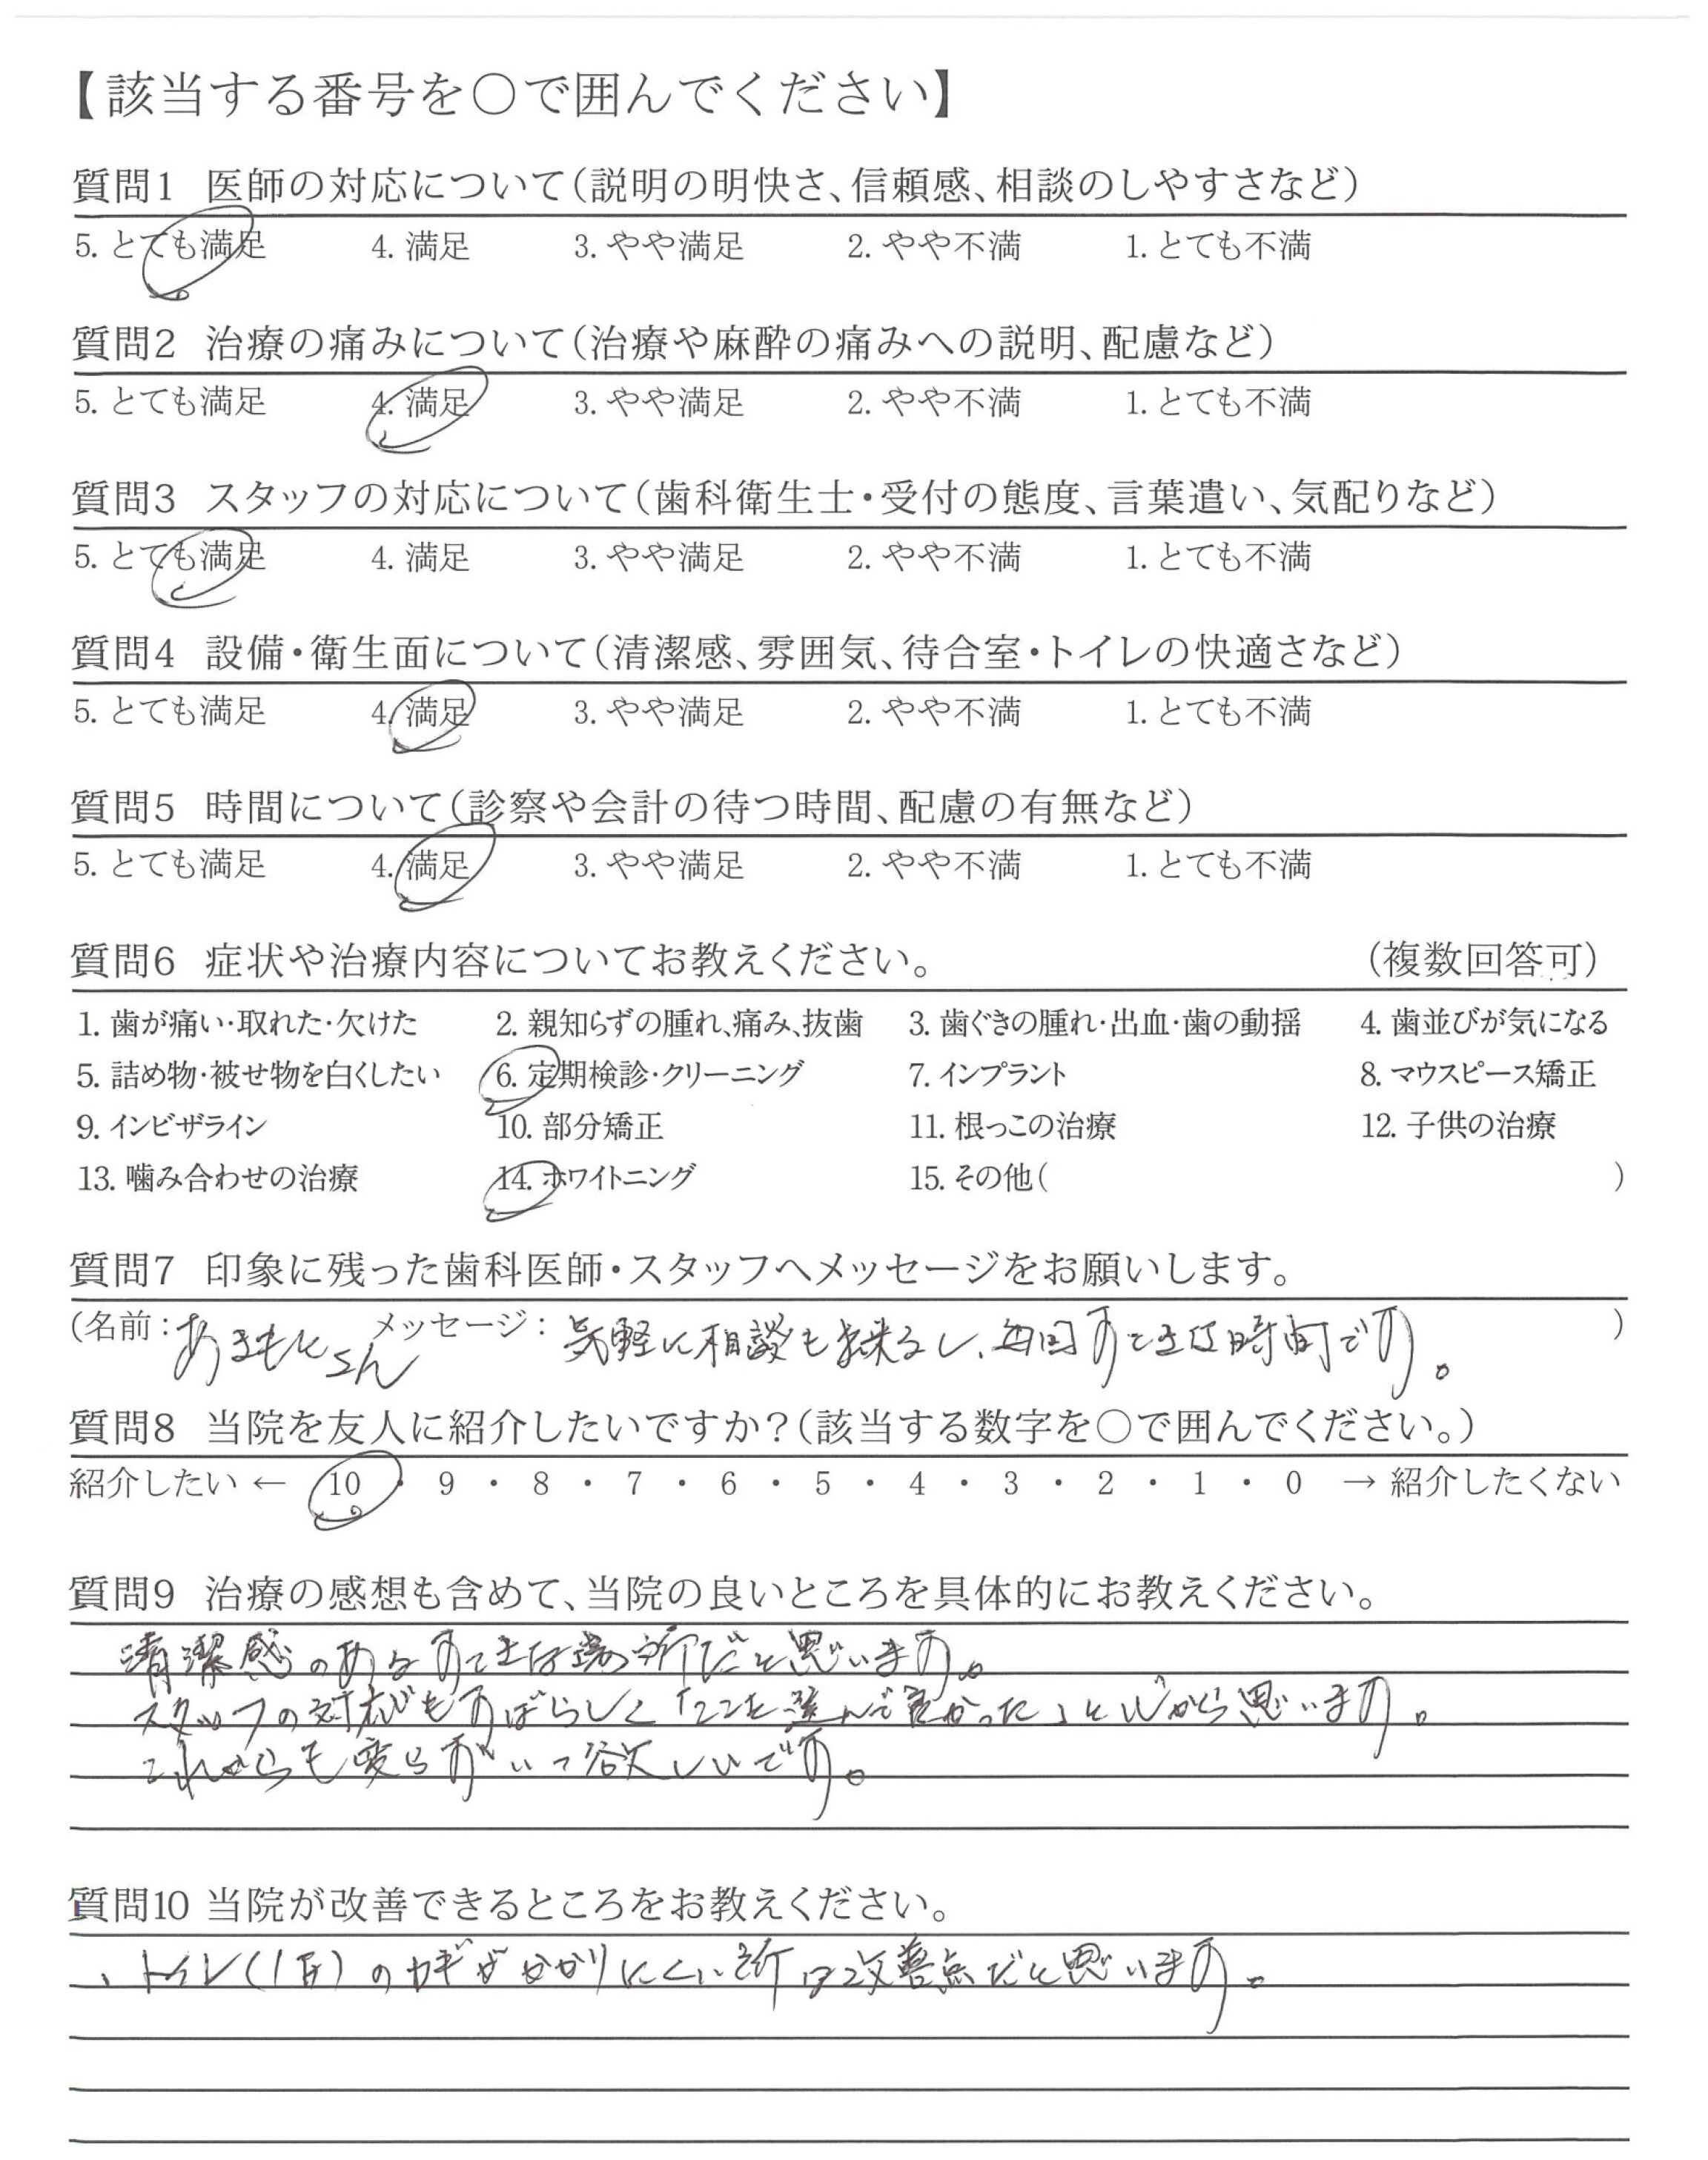 【該当する番号を○で囲んでください】
質問1 医師の対応について（説明の明快さ、信頼感、相談のしやすさなど）
5. とても満足 4. 満足 3. やや満足 2. やや不満 1. とても不満
質問2 治療の痛みについて（治療や麻酔の痛みへの説明、配慮など）
5. とても満足 4. 満足 3. やや満足 2. やや不満 1. とても不満
質問3 スタッフの対応について（歯科衛生士・受付の態度、言葉遣い、気配りなど）
5. とても満足 4. 満足 3. やや満足 2. やや不満 1. とても不満
質問4 設備・衛生面について（清潔感、雰囲気、待合室・トイレの快適さなど）
5. とても満足 4. 満足 3. やや満足 2. やや不満 1. とても不満
質問5 時間について（診察や会計の待つ時間、配慮の有無など）
5. とても満足 4. 満足 3. やや満足 2. やや不満 1. とても不満
質問6 症状や治療内容についてお教えください。 （複数回答可）
1. 歯が痛い・取れた・欠けた 2. 親知らずの腫れ、痛み、抜歯 3. 歯ぐきの腫れ・出血・歯の動揺 4. 歯並びが気になる
5. 詰め物・被せ物を白くしたい 6. 定期検診・クリーニング 7. インプラント 8. マウスピース矯正
9. インビザライン 10. 部分矯正 11. 根っこの治療 12. 子供の治療
13. 噛み合わせの治療 14. ホワイトニング 15. その他（ ）
質問7 印象に残った歯科医師・スタッフへメッセージをお願いします。
（名前： さん メッセージ：気軽に相談も出来るし、毎回すてきな時間です。 ）
質問8 当院を友人に紹介したいですか？（該当する数字を○で囲んでください。）
紹介したい ← 10 ・ 9 ・ 8 ・ 7 ・ 6 ・ 5 ・ 4 ・ 3 ・ 2 ・ 1 ・ 0 → 紹介したくない
質問9 治療の感想も含めて、当院の良いところを具体的にお教えください。
清潔感のあるすてきな場所だと思います。
スタッフの対応もすばらしく「ここを選んで良かった」と心から思います。
これからも変らずいて欲しいです。
質問10 当院が改善できるところをお教えください。
、トイレ（1F）のカギがかかりにくい所は改善点だと思います。